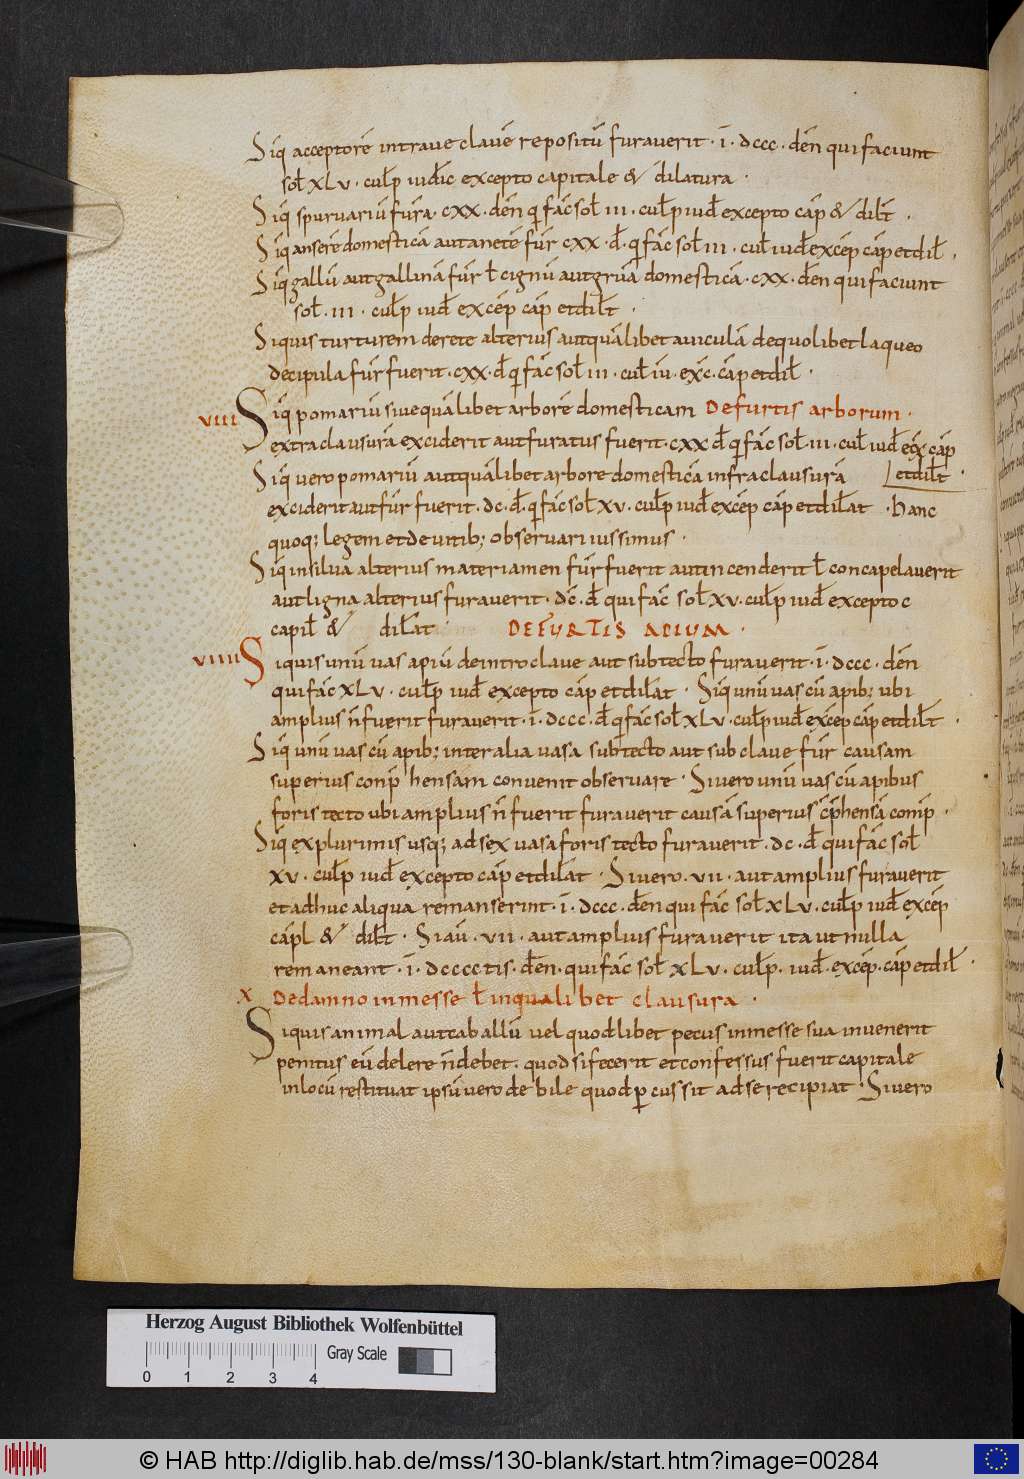 Siq̄ acceptorē intra ue clauē repositū furauerit · ī · dccc · deñ qui faciunt
sol̄ xlv · cul̄p iud̄ic excepto capitale & dilatura ·
Siq̄ spuruariū fur̄a · cxx · deñ q̄ fac̄ sol̄ iii · cul̄p iud̄ excepto cap̄ & dil̄t ·
Siq̄ anserē domesticā aut anetē fur̄ cxx · d̄ · q̄ fac̄ sol̄ iii · cul̄ iud̄ excep̄ cap̄ et dil̄ ·
Siq̄ gallū aut gallinā fur̄ l̄ cignū aut gruā domesticā · cxx · deñ qui faciunt
sol̄ · iii · cul̄p iud̄ excep̄ cap̄ et dil̄t ·
Siquis turturem de rete alterius aut quālibet auiculā de quolibet laqueo
decipula fur̄ fuerit · cxx · d̄ q̄ fac̄ sol̄ iii · cul̄ iū · exc̄ · cap̄ et dil̄ ·
viii Siq̄ pomariū siue quālibet arborē domesticam De furtis arborum ·
extra clausurā exciderit aut furatus fuerit · cxx d̄ q̄ fac̄ sol̄ iii · cul̄ iud̄ ex̄ cap̄
Siq̄ uero pomariū aut quālibet arborē domesticā infra clausurā et dil̄t ·
exciderit aut fur̄ fuerit · dc · d̄ · q̄ fac̄ sol̄ xv · cul̄p iud̄ excep̄ cap̄ et dil̄at · Hanc
quoq; legem et de uitib; obseruari iussimus ·
Siq̄ in silua alterius materiamen fur̄ fuerit aut incenderit l̄ concapelauerit
aut ligna alterius furauerit · dc̄ · d̄ qui fac̄ sol̄ xv · cul̄p iud̄ excepto c
capil̄ & dil̄at · DE FURTIS APIUM ·
viiii Siquis unū uas apiū de intro claue aut sub tecto furauerit · ī · dccc · deñ
qui fac̄ xlv · cul̄p iud̄ excepto cap̄ et dil̄at · Siq̄ unū uas cū apib; ubi
amplius n̄ fuerit furauerit · ī · dccc · d̄ q̄ fac̄ sol̄ xlv · cul̄p iud̄ excep̄ cap̄ et dil̄t ·
Siq̄ unū uas cū apib; inter alia uasa sub tecto aut sub claue fur̄ causam
superius conp̄ hensam conuenit obseruare · Si uero unū uas cū apibus
foris tecto ubi amplius n̄ fuerit furauerit causā superius c̄p̄hensā conip̄ ·
Siq̄ ex plurimis usq; ad sex uasa foris tecto furauerit · dc · d̄ qui fac̄ sol̄
xv · cul̄p iud̄ excepto cap̄ et dil̄at · Si uero · vii · aut amplius furauerit
et adhuc aliqua remanserint · ī · dccc · deñ qui fac̄ sol̄ xlv · cul̄p iud̄ excep̄
cap̄l & dil̄t · Si aū · vii · aut amplius furauerit ita ut nulla
remaneant · ī · dcccc tis · deñ · qui fac̄ sol̄ xlv · cul̄p · iud̄ · excep̄ · cap̄ et dil̄ ·
x De damno in messe l̄ in qualibet clausura ·
Siquis animal aut caballū uel quodlibet pecus in messe sua inuenerit
penitus eū delere n̄ debet · quod si fecerit et confessus fuerit capitale
in locū restituat ipsū uero debile quod p̄cussit ad se recipiat · Si uero
Herzog August Bibliothek Wolfenbüttel
Gray Scale
0 1 2 3 4
© HAB http://diglib.hab.de/mss/130-blank/start.htm?image=00284